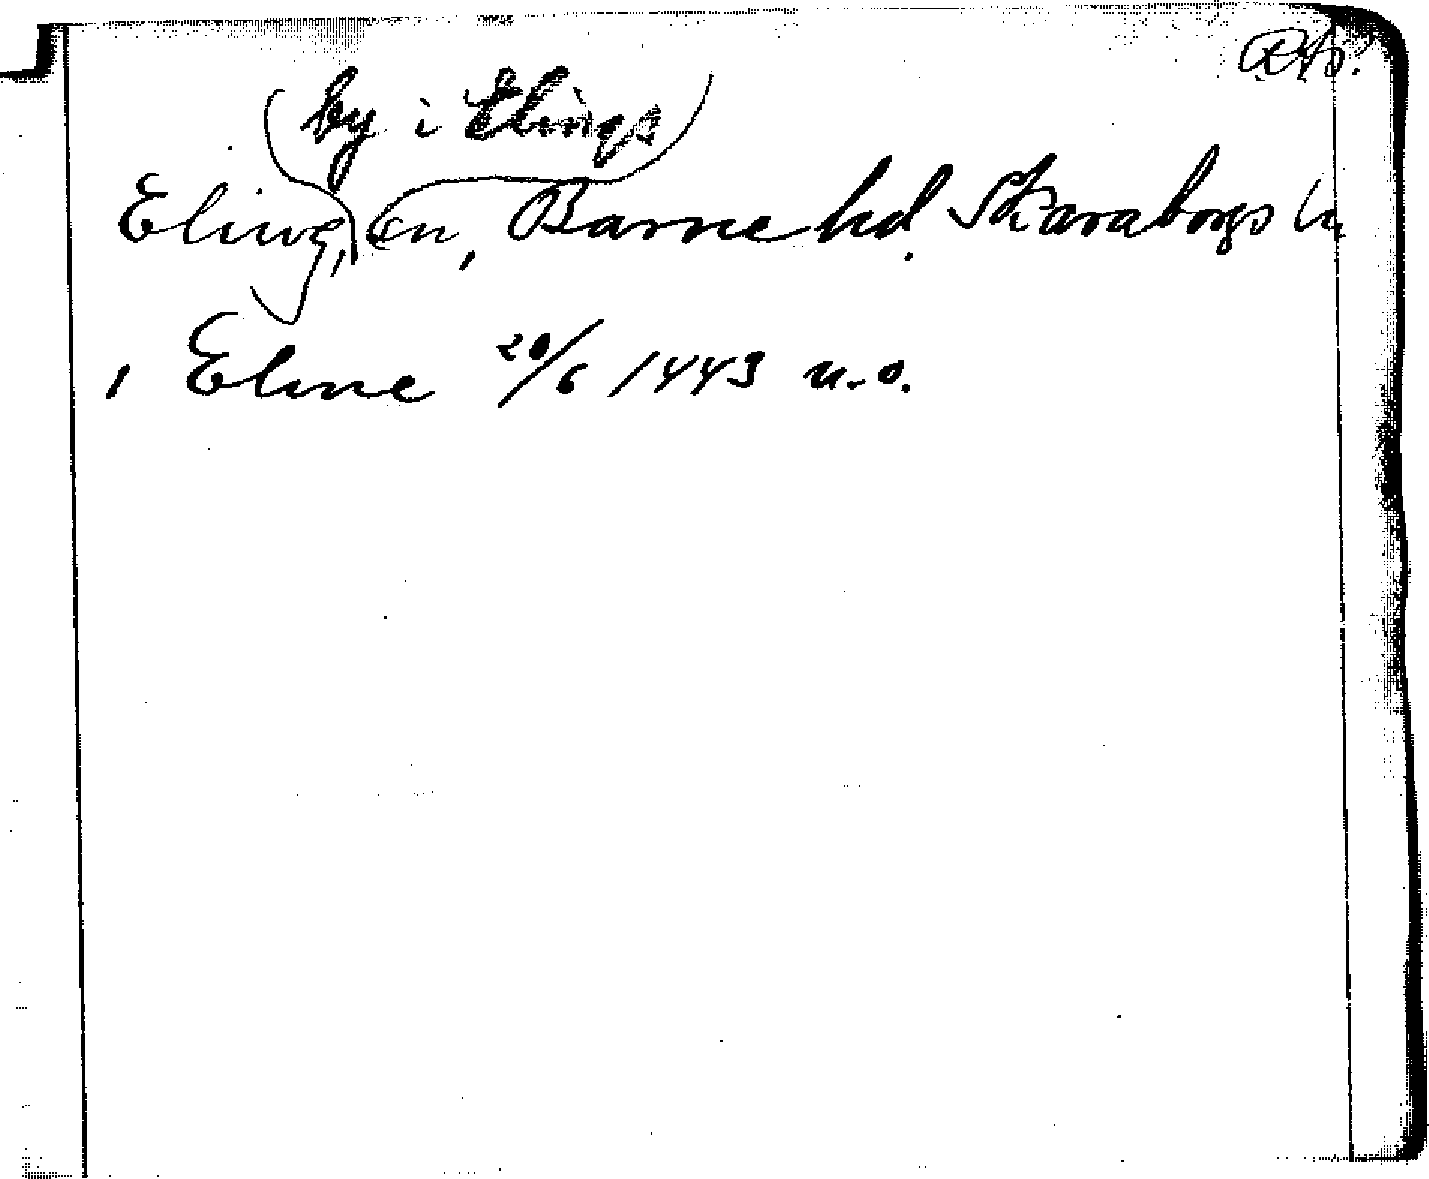 RAp.
by i Elings
Eling, sn, Barne hd. Skaraborgs län
, Eline 20/6 1443 u.o.